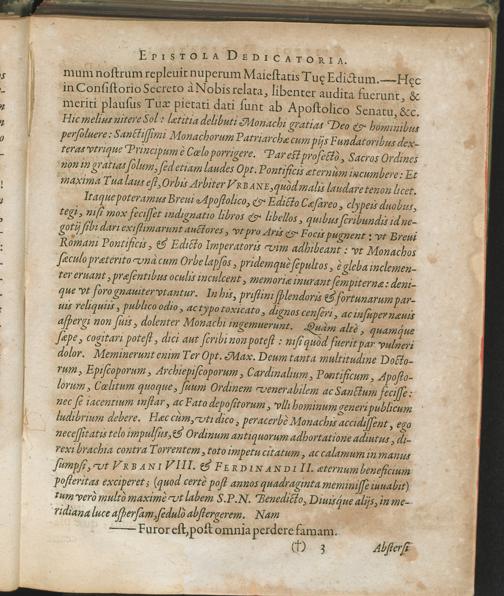 EPISTOLA DEDICATORIA.
mum nostrum repleuit nuperum Maiestatis Tuę Edictum.—Hęc
in Consistorio Secreto à Nobis relata, libenter audita fuerunt, &
meriti plausus Tuæ pietati dati sunt ab Apostolico Senatu, &c.
Hic melius nitere Sol: lætitia delibuti Monachi gratias Deo & hominibus
persoluere: Sanctissimi Monachorum Patriarchæ cum pijs Fundatoribus dex-
teras vtrique Principum è Cœlo porrigere. Par est profectò, Sacros Ordines
non in gratias solum, sed etiam laudes Opt. Pontificis æternùm incumbere: Et
maxima Tua laus est, Orbis Arbiter VRBANE, quòd malis laudare te non licet.
Itaque poteramus Breui Apostolico, & Edicto Cæsareo, clypeis duobus,
tegi, nisi mox fecisset indignatio libros & libellos, quibus scribundis id ne-
gotij sibi dari existimarunt auctores, vt pro Aris & Focis pugnent: vt Breui
Romani Pontificis, & Edicto Imperatoris vim adhibeant: vt Monachos
sæculo præterito vnà cum Orbe lapsos, pridemque sepultos, è gleba inclemen-
ter eruant, præsentibus oculis inculcent, memoriæ inurant sempiternæ: deni-
que vt foro gnauiter vtantur. In his, pristini splendoris & fortunarum par-
uis reliquijs, publico odio, ac typo toxicato, dignos censeri, ac insuper næuis
aspergi non suis, dolenter Monachi ingemuerunt. Quàm altè, quamque
sæpe, cogitari potest, dici aut scribi non potest: nisi quod fuerit par vulneri
dolor. Meminerunt enim Ter Opt. Max. Deum tanta multitudine Docto-
rum, Episcoporum, Archiepiscoporum, Cardinalium, Pontificum, Aposto-
lorum, Cœlitum quoque, suum Ordinem venerabilem ac Sanctum fecisse:
nec se iacentium instar, ac Fato depositorum, vlli hominum generi publicum
ludibrium debere. Hæc cùm, vti dico, peracerbè Monachis accidissent, ego
necessitatis telo impulsus, & Ordinum antiquorum adhortatione adiutus, di-
rexi brachia contra Torrentem, toto impetu citatum, ac calamum in manus
sumpsi, vt VRBANI VIII. & FERDINANDI II. æternum beneficium
posteritas exciperet; (quod certè post annos quadraginta meminisse iuuabit)
tum verò multò maximè vt labem S.P.N. Benedicto, Diuisque alijs, in me-
ridiana luce aspersam, sedulò abstergerem. Nam
—— Furor est, post omnia perdere famam.
(†) 3 Abstersi